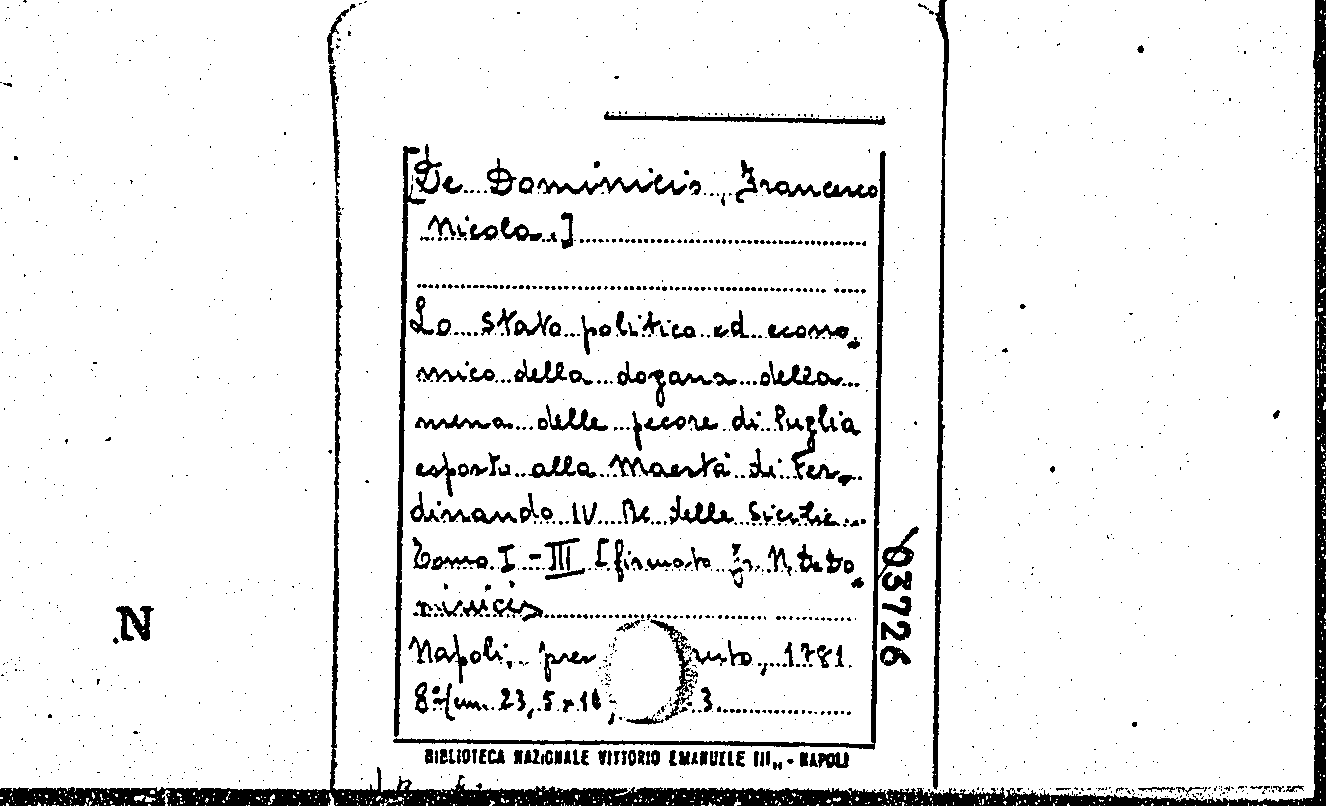 [De Dominicis, Francesco
Nicola.]
Lo stato politico ed econo-
mico della dogana della
mena delle pecore di Puglia
esposto alla Maestà di Fer-
dinando IV Re delle Sicilie...
Tomo I - III [firmato Fr. N. De Do-
minicis
Napoli, 1781.
8° (cm. 23,5 x 3
BIBLIOTECA NAZIONALE VITTORIO EMANUELE III,, - NAPOLI
03726
N